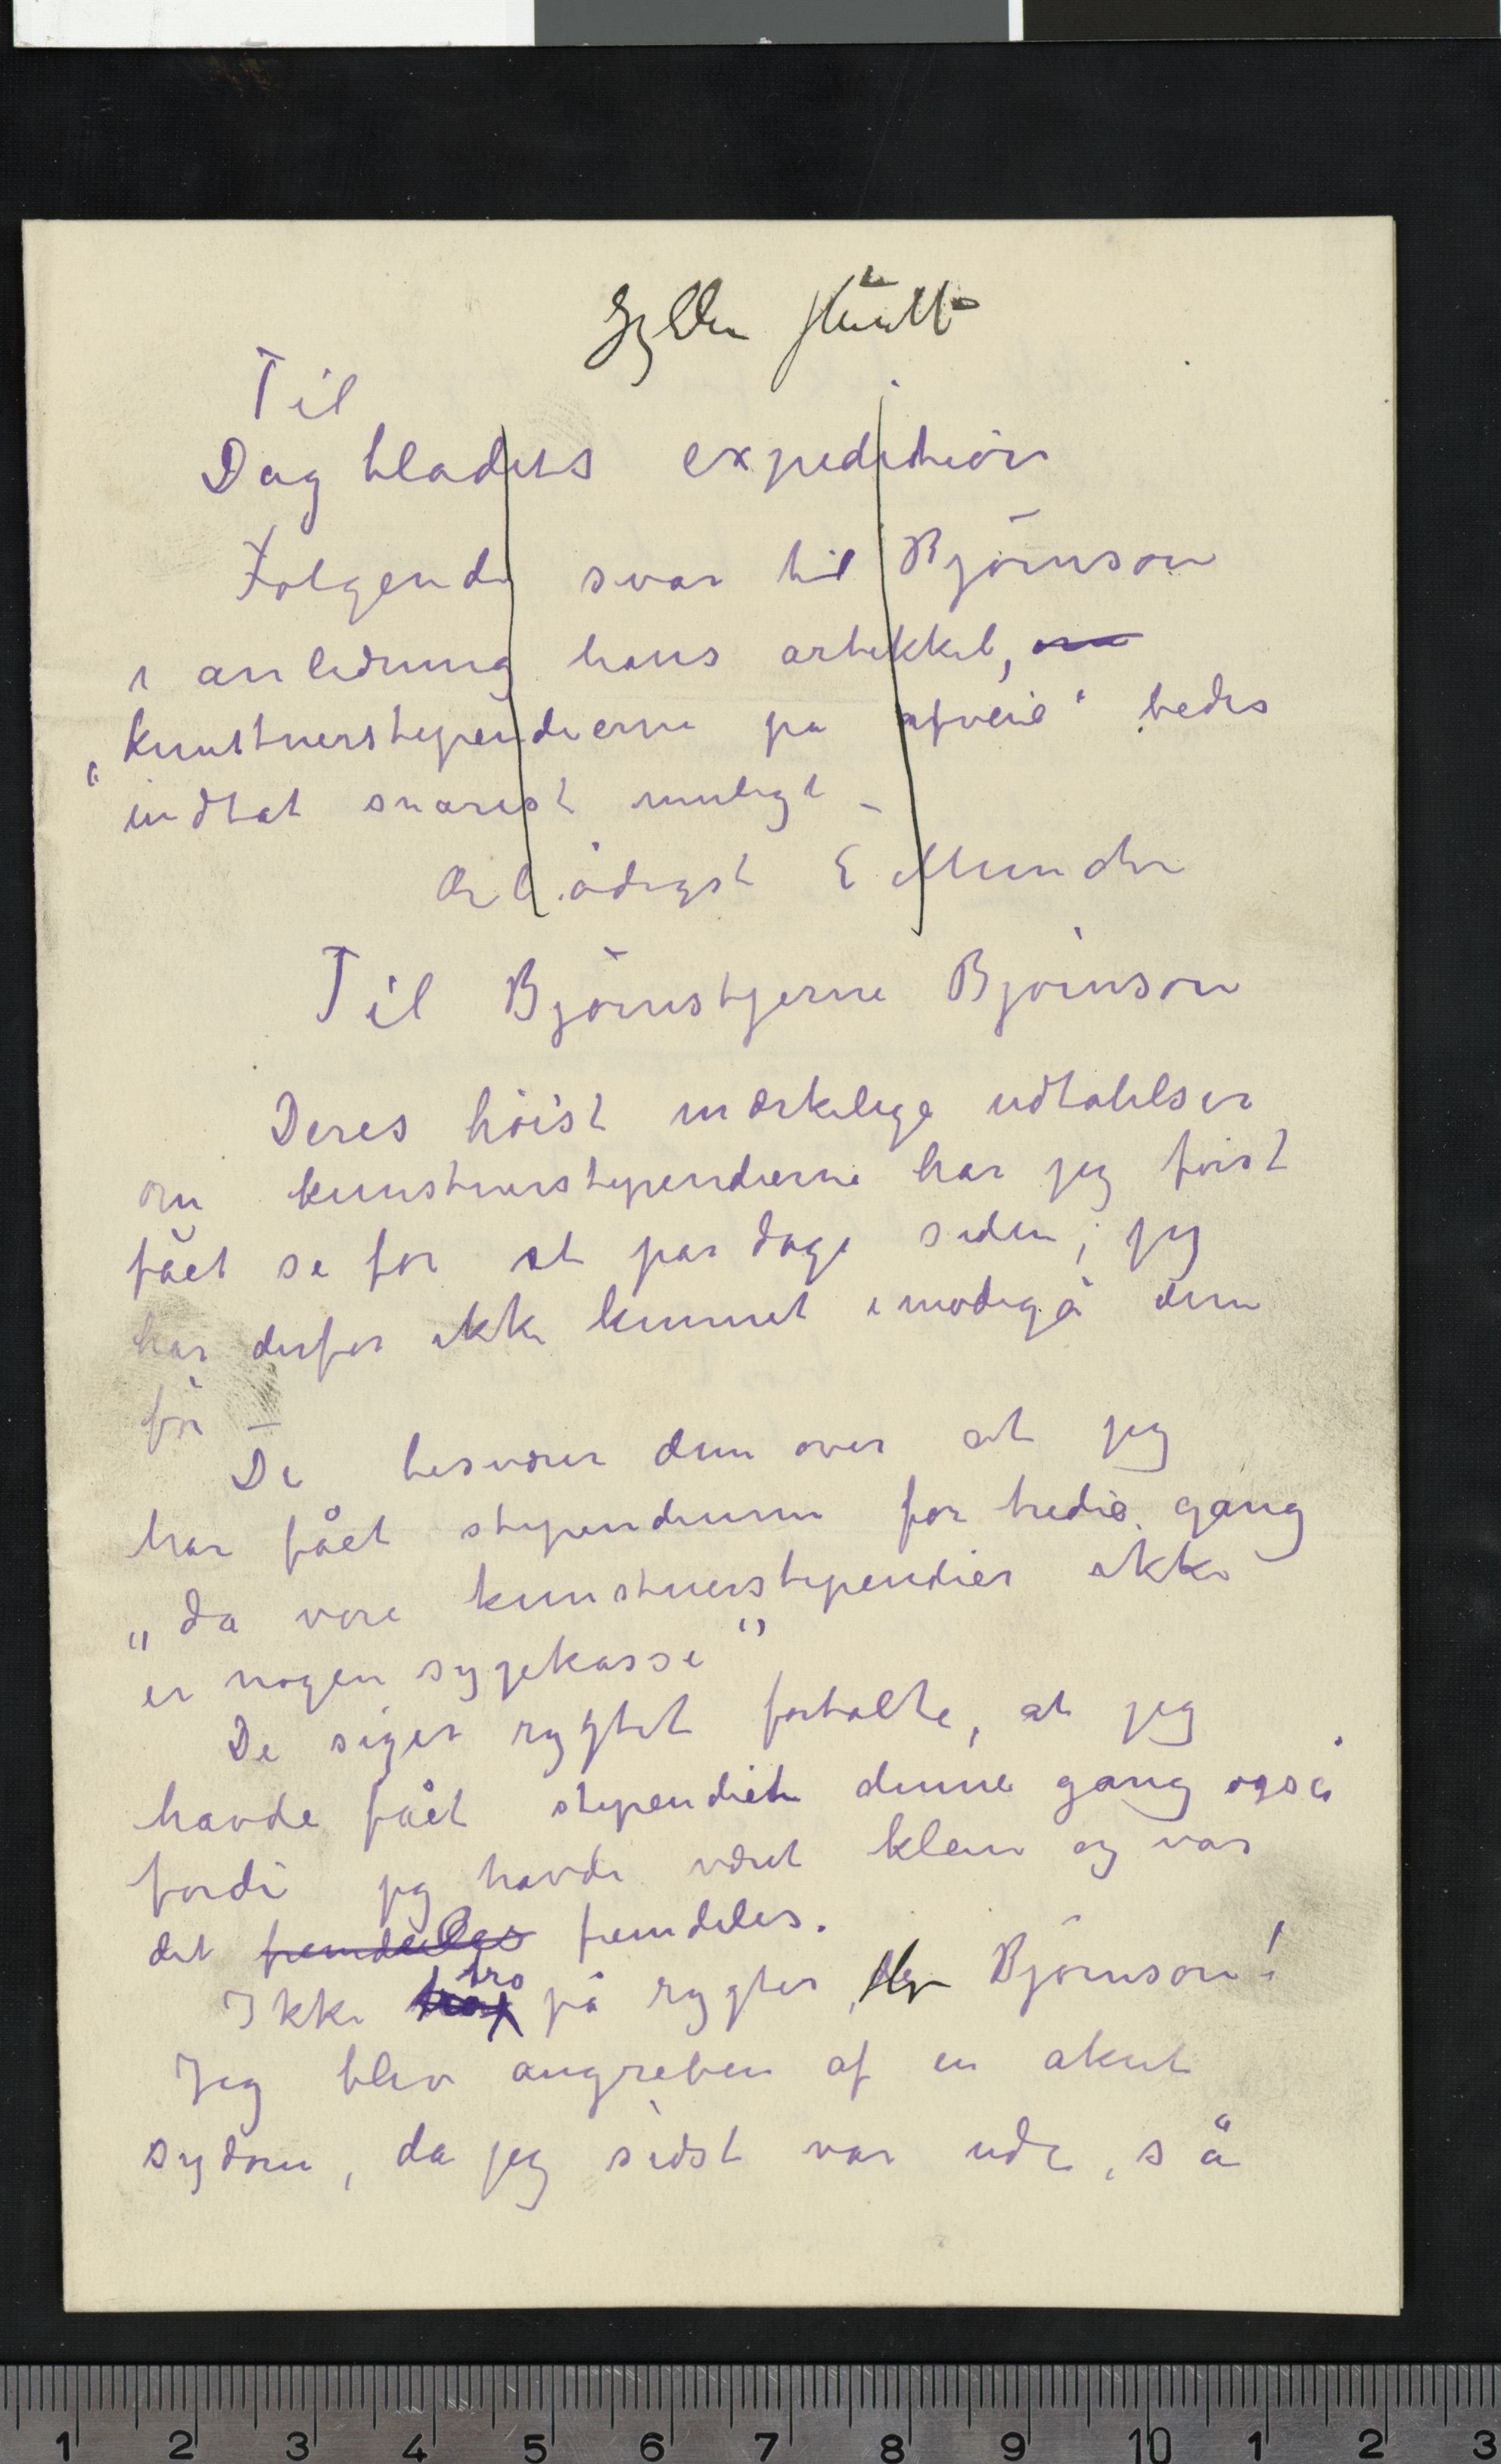 Til
Dagbladets expedition
Følgende svar til Bjørnson
i anledning hans artikkel, om
„Kunstnerstipendierne på afveie“ bedes
indtat snarest muligt –
Ærbødigst E Munch
Til Bjørnstjerne Bjørnson
Deres høist mærkelige udtalelser
om kunstnerstipendierne har jeg først
fået se for et par dage siden; jeg
har derfor ikke kunnet imødegå dem
før –
De besværer dem over at jeg
har fået stipendium for tredie gang
„da vore kunstnerstipendier ikke
er nogen sygekasse“
De siger rygtet fortalte, at jeg
havde fået stipendiet denne gang også
fordi jeg havde været klein og var
det fremdeles fremdeles.
Ikke tro på rygter, Hr Bjørnson!
Jeg blev angreben af en akut
sydom, da jeg sidst var ude, så
1 2 3 4 5 6 7 8 9 10 1 2 3